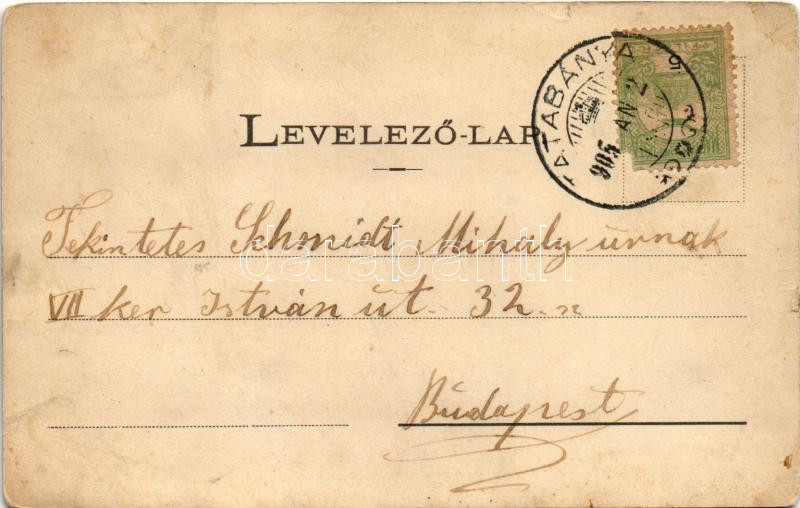 LEVELEZŐ-LAP
TATABÁNYA
905 JAN 2
5
Tekintetes Schmidt Mihály úrnak
VII ker István út. 32. sz
Budapest
darabanth